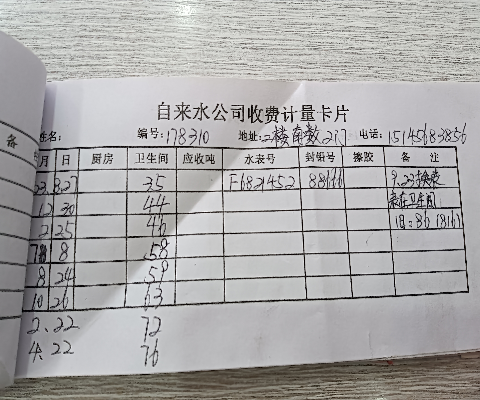 备
自来水公司收费计量卡片
姓名: 编号:178310 地址:二楼南数217 电话:15145683856
月 日 厨房 卫生间 应收吨 水表号 封铅号 擦胶 备 注
23. 9.27 35 F6821452 88666 9.22换表
12 30 44 表在卫生间
2 25 46 旧:86 18167
7 8 58
8 24 58
10 26 63
2. 22 72
4. 22 76